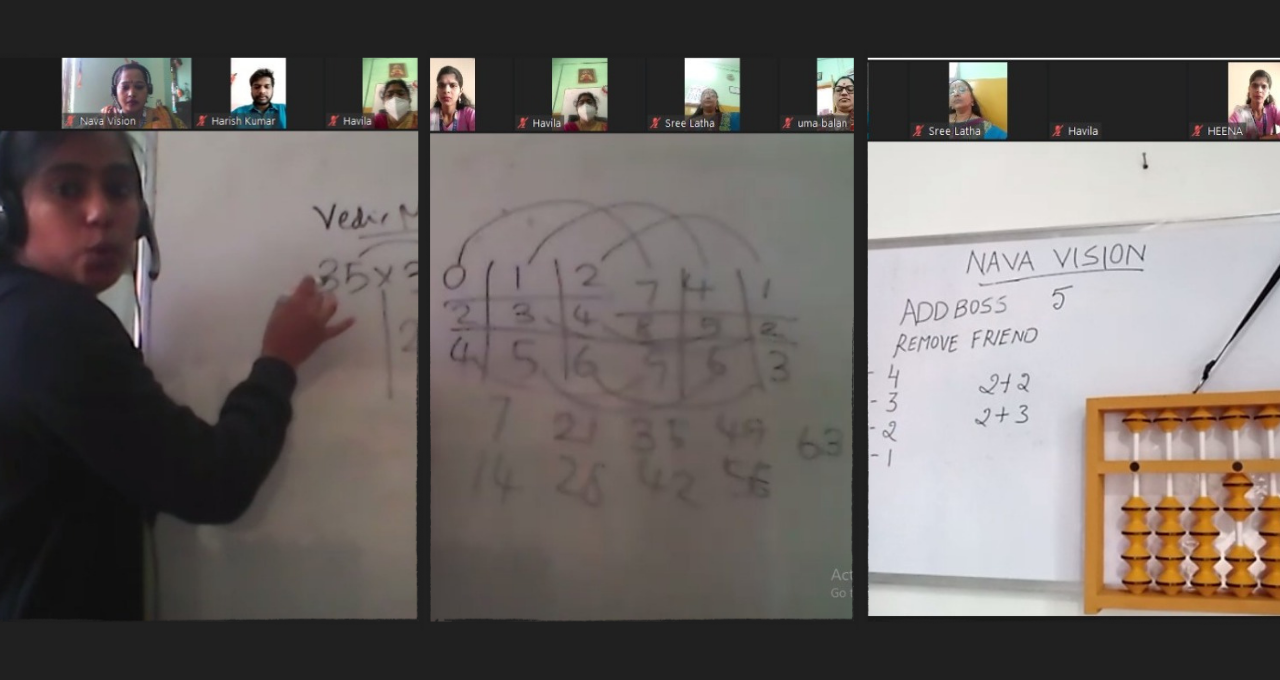 Nava Vision
Harish Kumar
Havila
Vedic M
35×3
2
Havila
Sree Latha
uma balan
0 1 2 7 4 1
2 3 4
4 5 6 5 6 3
7 21 35 49 63
14 28 42 56
Act
Go t
Sree Latha
Havila
HEENA
NAVA VISION
ADD BOSS 5
REMOVE FRIEND
- 4
- 3
- 2
- 1
2+2
2+3